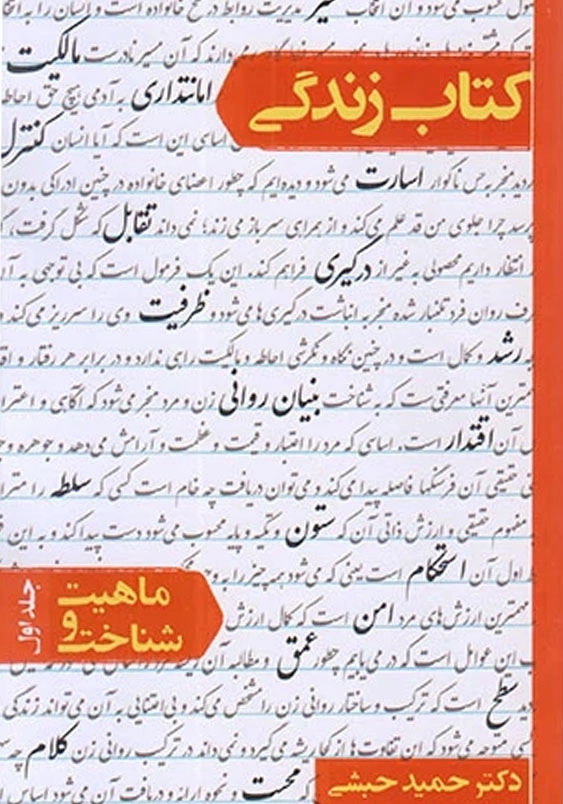 مدیریت روابط در سطح خانواده است و انسان را به انتخا
می‌دارند که آن مسیر نادرست مالکیت
امانتداری به آدمی هیچ حق احاطه
کتاب زندگی
اساسی این است که آیا انسان کنترل
منجر به حس ناگوار اسارت می‌شود و دیده‌ایم که چطور اعضای خانواده در چنین ادراکی بدون
پرسد چرا جلوی من قد علم می‌کند و از همراهی سر باز می‌زند؛ نمی‌داند تقابل که شکل گرفت،
انتظار داریم محصولی به غیر از درگیری فراهم کند. این یک فرمول است که بی توجهی به
روان فرد تلنبار شده منجر به انباشت درگیری ها می‌شود و ظرفیت وی را سرریز می‌کند و
رشد و کمال است و در چنین نگاه و نگرشی احاطه و مالکیت راهی ندارد و در برابر هر رفتار و
آنها معرفتی‌ست که به شناخت بنیان روانی زن و مرد منجر می‌شود که آگاهی و
آن اقتدار است. اساسی که مرد را اعتبار و قیمت و عظمت و آرامش می‌دهد و جوهره و
حقیقی آن فرسنگها فاصله پیدا می‌کند و می‌توان دریافت چه خام است کسی که سلطه را
مفهوم حقیقی و ارزش ذاتی آن که ستون و تکیه و پایه محسوب می‌شود دست پیدا کند و به این
اول آن استحکام است یعنی که می‌شود همه چیز را به
مهمترین ارزش های مرد امن است که کمال ارزش
ماهیت
و
شناخت
جلد اول
این عوامل است که در می‌یابیم چطور عمق و مطالبه آن
سطح است که ترکیب و ساختار روانی زن را مشخص می‌کند و بی‌اعتنایی به آن می‌تواند زندگی
متوجه می‌شود که این تفاوت ها از کجا ریشه می‌گیرد و نمی‌داند در ترکیب روانی زن کلام
که محبت و نحوه ارائه و دریافت آن می‌شود اساس
دکتر حمید حبشی